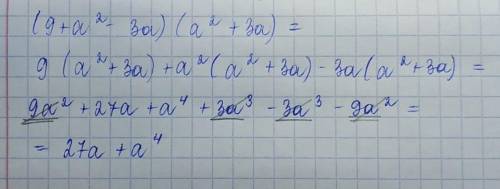 (9 + a² - 3a) (a² + 3a) =
9 (a² + 3a) + a² (a² + 3a) - 3a (a² + 3a) =
9a² + 27a + a⁴ + 3a³ - 3a³ - 9a² =
= 27a + a⁴